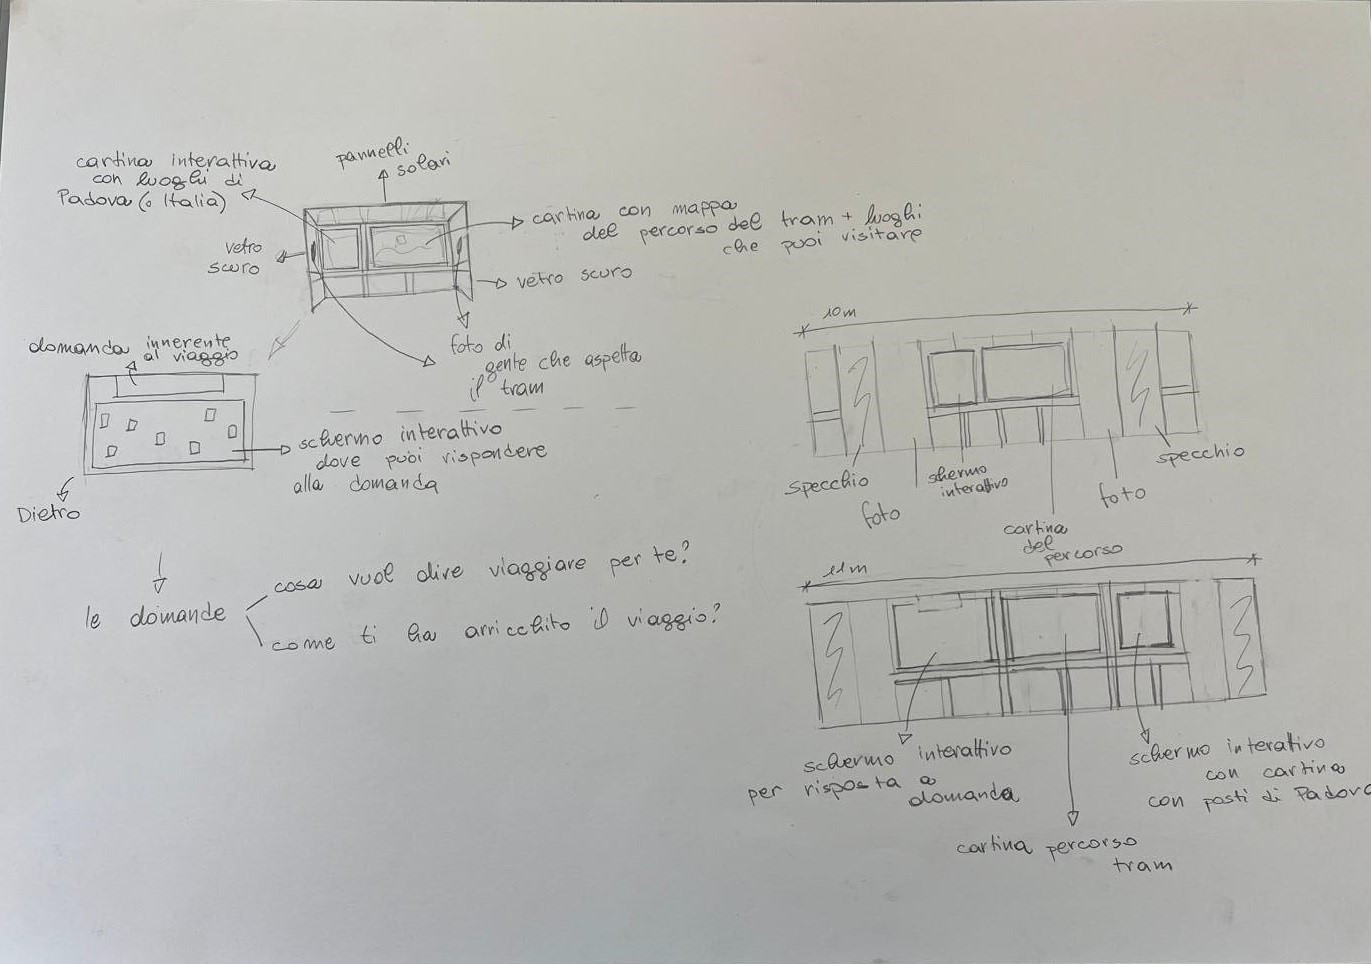 cartina interattiva
con luoghi di
Padova (o Italia)
pannelli
solari
cartina con mappa
del percorso del tram + luoghi
che puoi visitare
vetro
scuro
vetro scuro
foto di
gente che aspetta
il tram
domanda innerente
al viaggio
schermo interattivo
dove puoi rispondere
alla domanda
Dietro
le domande
cosa vuol dire viaggiare per te?
come ti ha arricchito il viaggio?
10m
specchio
foto
schermo
interattivo
cartina
del
percorso
foto
specchio
11m
schermo interattivo
per risposta a
domanda
cartina percorso
tram
schermo interativo
con cartina
con posti di Padova